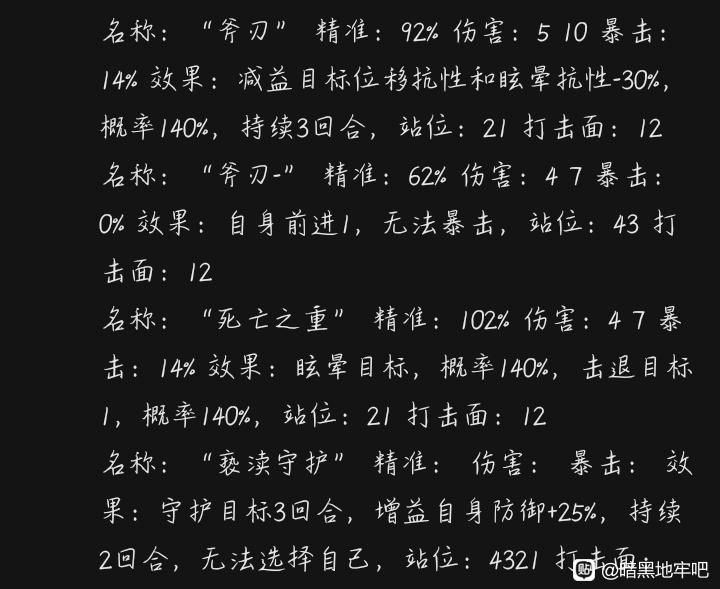 名称：“斧刃” 精准：92% 伤害：5 10 暴击：
14% 效果：减益目标位移抗性和眩晕抗性-30%，
概率140%，持续3回合，站位：21 打击面：12
名称：“斧刃-” 精准：62% 伤害：4 7 暴击：
0% 效果：自身前进1，无法暴击，站位：43 打
击面：12
名称：“死亡之重” 精准：102% 伤害：4 7 暴
击：14% 效果：眩晕目标，概率140%，击退目标
1，概率140%，站位：21 打击面：12
名称：“亵渎守护” 精准： 伤害： 暴击： 效
果：守护目标3回合，增益自身防御+25%，持续
2回合，无法选择自己，站位：4321 打击面：
贴 @暗黑地牢吧